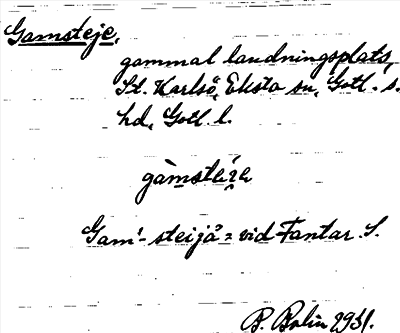 Gamsteje,
gammal landningsplats,
St. Karlsö, Eksta sn, Gotl. s.
hd, Gotl. l.
Gam'-steijå = vid Fantar. S.
B. Bolin 1931.